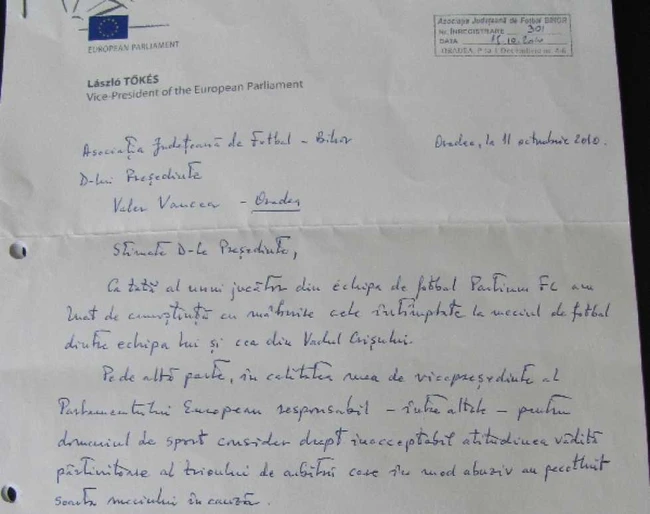 EUROPEAN PARLIAMENT
Asociaţia Judeţeană de Fotbal BIHOR
Nr. ÎNREGISTRARE 301
DATA 15.10.2010
László TŐKÉS
Vice-President of the European Parliament
Asociația Județeană de Fotbal - Bihor
Oradea, la 11 octombrie 2010.
D-lui Președinte
Valer Vancea - Oradea
Stimate D-le Președinte,
Ca tată al unui jucător din echipa de fotbal Partium FC am
luat de cunoștință cu mâhnire cele întîmplate la meciul de fotbal
dintre echipa lui și cea din Vadul Crișului.
Pe de altă parte, în calitatea mea de vicepreședinte al
Parlamentului European responsabil - între altele - pentru
domeniul de sport consider drept inacceptabil atitudinea vădită
părtinitoare al trioului de arbitri care în mod abuziv au pecetluit
soarta meciului în cauză.